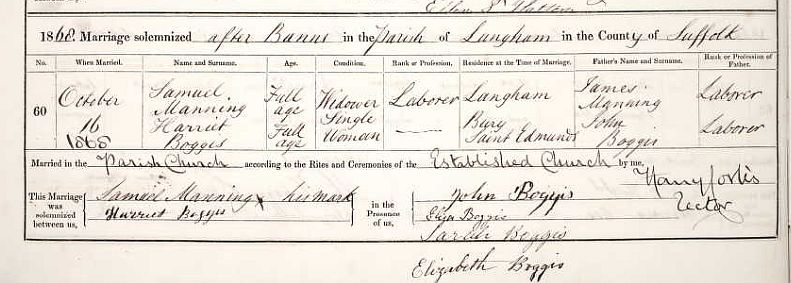 1868. Marriage solemnized after Banns in the Parish of Langham in the County of Suffolk
No. When Married. Name and Surname. Age. Condition. Rank or Profession. Residence at the Time of Marriage. Father's Name and Surname. Rank or Profession of Father.
60 October 16 1868 Samuel Manning Full age Widower Laborer Langham James Manning Laborer
Harriet Bogges Full age Single Woman — Bury Saint Edmunds John Boggis Laborer
Married in the Parish Church according to the Rites and Ceremonies of the Established Church by me,
Rector
This Marriage was solemnized between us, Samuel Manning x his mark
Harriet Boggis
in the Presence of us, John Boggis
Eliza Boggis
Sarah Boggis
Elizabeth Boggis